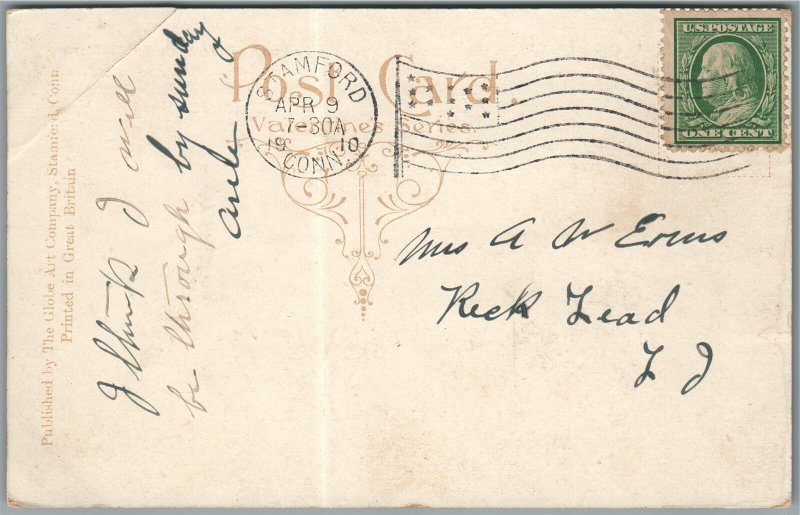 Post Card.
Valentine's Series.
STAMFORD
APR 9
7-30A
19 10
CONN.
U.S. POSTAGE
ONE CENT
Published by The Globe Art Company, Stamford, Conn
Printed in Great Britain
I think I will
be through by sunday
Mrs A W Evens
Reck Lead
L I